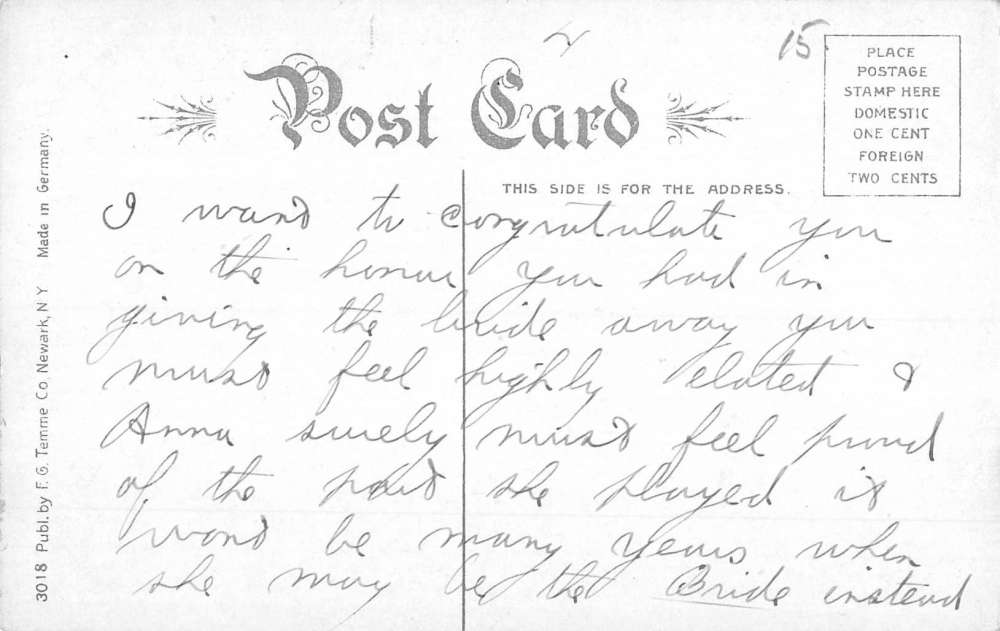 15
Post Card
PLACE
POSTAGE
STAMP HERE
DOMESTIC
ONE CENT
FOREIGN
TWO CENTS
THIS SIDE IS FOR THE ADDRESS.
I want to congratulate you
on the honor you had in
giving the bride away you
must feel highly elated &
Anna surely must feel proud
of the part she played it
wont be many years when
she may be the Bride instead
3018 Publ. by F. G. Temme Co. Newark, N Y Made in Germany.